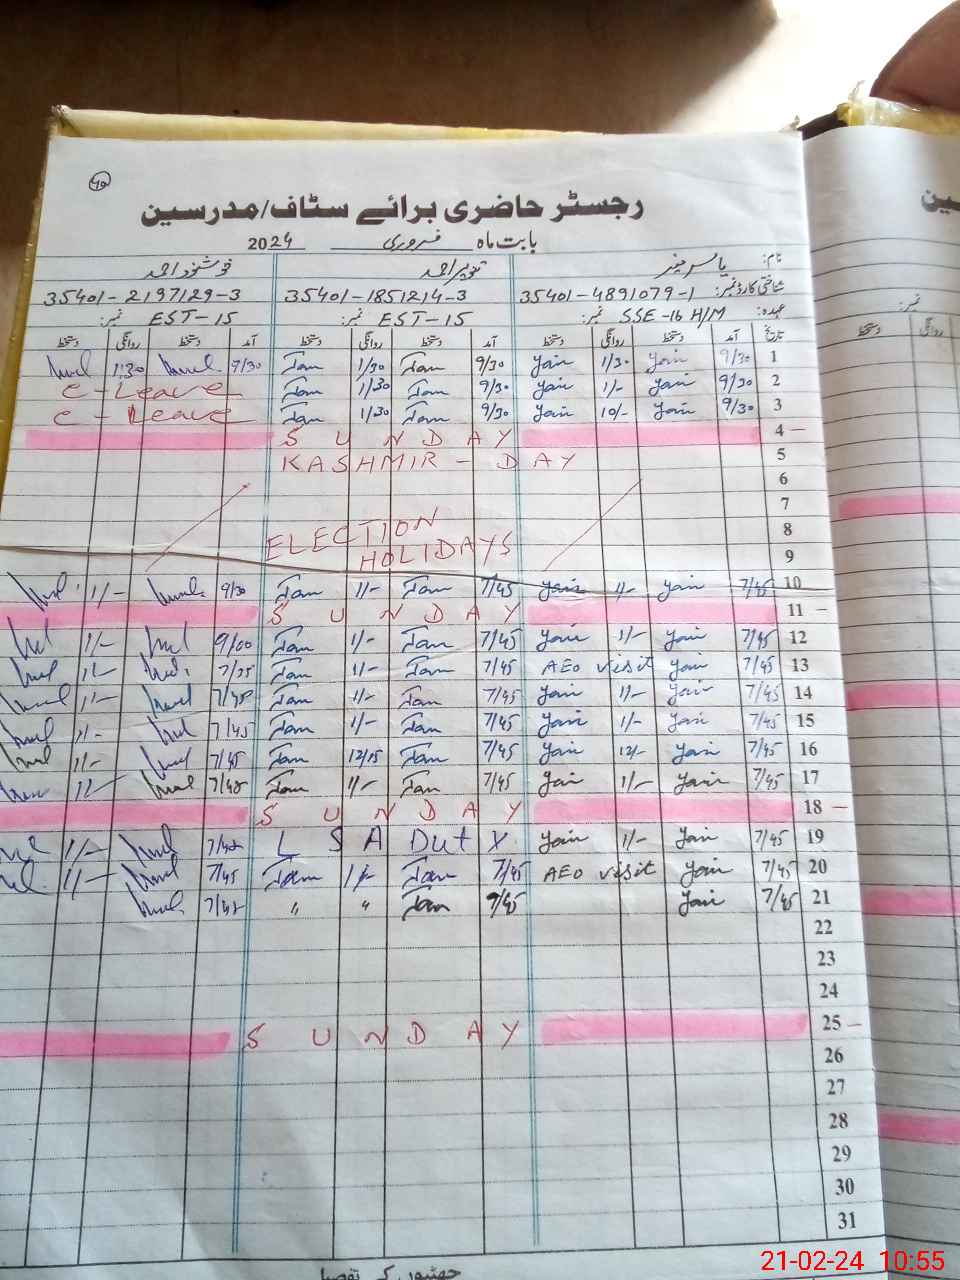 40
رجسٹر حاضری برائے سٹاف/مدرسین
بابت ماہ فروری 2024
نام: یاسر منیر تنویر احمد خوشنود احمد
شناختی کارڈ نمبر: 35401-4891079-1 35401-1851214-3 35401-2197129-3
عہدہ: SSE-16 H/M نمبر: EST-15 نمبر: EST-15
تاریخ آمد دستخط روانگی دستخط آمد دستخط روانگی دستخط آمد دستخط روانگی دستخط
1 9/30 Yasir 1/30 Yasir 9/30 Tan 1/30 Tan 9/30 1:30
2 9/30 Yasir 1/- Yasir 9/30 Tan 1/30 Tan C-Leave
3 9/30 Yasir 10/- Yasir 9/30 Tan 1/30 Tan C-Leave
4 - SUNDAY
5 KASHMIR-DAY
6
7
8 ELECTION
9 HOLIDAYS
10 7/45 Yasir 1/- Yasir 7/45 Tan 1/- Tan 9/30 1/-
11 - SUNDAY
12 7/45 Yasir 1/- Yasir 7/45 Tan 1/- Tan 9/00 1/-
13 7/45 Yasir AEO visit 7/45 Tan 1/- Tan 1/-
14 7/45 Yasir 1/- Yasir 7/45 Tan 1/- Tan 7/45 1/-
15 7/45 Yasir 1/- Yasir 7/45 Tan 1/- Tan 7/45 1/-
16 7/45 Yasir 12/- Yasir 7/45 Tan 12/15 Tan 7/45 1/-
17 7/45 Yasir 1/- Yasir 7/45 Tan 1/- Tan 7/45 1/-
18 - SUNDAY
19 7/45 Yasir 1/- Yasir LSA Duty 7/45 1/-
20 7/45 Yasir AEO visit 7/45 Tan 1/- Tan 7/45 1/-
21 7/45 Yasir 7/45 Tan " " 7/45
22
23
24
25 - SUNDAY
26
27
28
29
30
31
چھٹیوں کی تفصیل
21-02-24 10:55